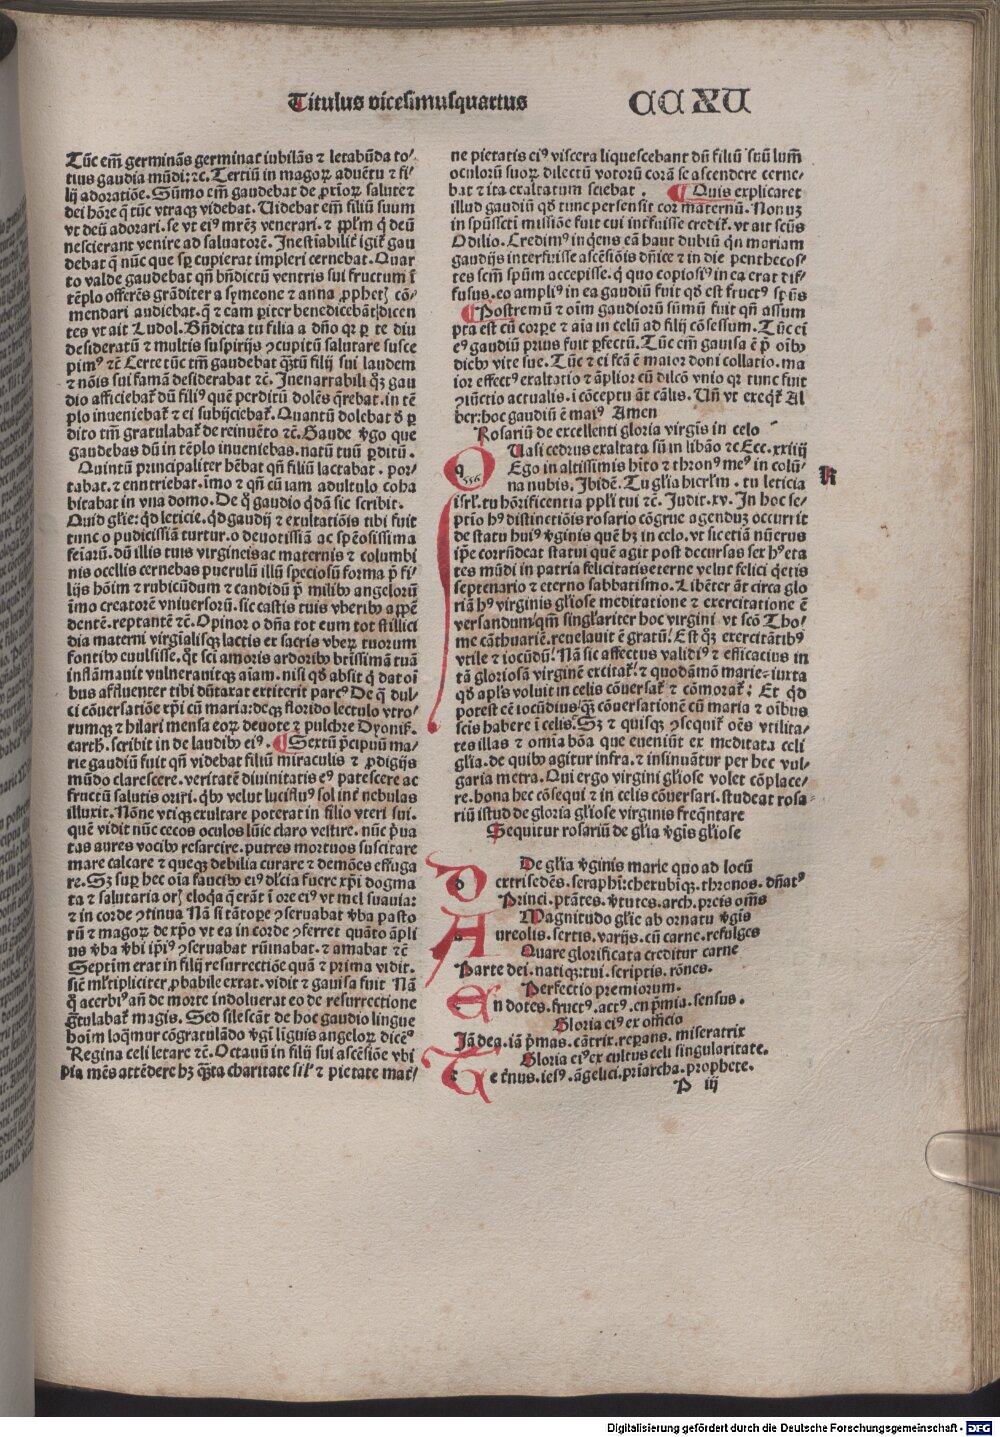 Titulus vicesimusquartus
CCXV
Tūc em̄ germinās germinat iubilās ⁊ letabūda to/
tius gaudia mūdi: ⁊c. Tertiū in magoꝝ aduētu ⁊ fi/
lij adoratiōe. Sūmo em̄ gaudebat de salute ⁊
dei hōre q̄ tūc vtraqꝫ videbat. Uidebat em̄ filiū suum
vt deū adorari. se vt eiꝰ mr̄eꝫ venerari. ⁊ q̄ deū
nescierant venire ad saluatorē. Inestiabilit̄ igit̄ gau
debat q̄ nūc que sꝑ cupierat impleri cernebat. Quar
to valde gaudebat qn̄ bn̄dictū ventris sui fructum ī
tēplo offerēs grāditer a symeone ⁊ anna ꝓphetꝭ cō/
mendari audiebat. q̄ ⁊ eam ꝑiter benedicebāt dicen
tes vt ait Ludol. Bn̄dicta tu filia a dn̄o qꝛ ꝑ te diu
desideratū ⁊ multis suspirijs ꝯcupitū salutare susce
pimꝰ ⁊c̄ Certe tūc tm̄ gaudebat qʒtū filij sui laudem
⁊ nōis sui famā desiderabat ⁊c̄. Inenarrabili qʒ gau
dio afficiebat̄ dū filiꝰ quē perditū dolēs q̄rebat. in tē
plo inueniebat̄ ⁊ ei subijciebat̄. Quantū dolebat ꝑ
dito tm̄ gratulabat̄ de reinuēto ⁊c̄. Gaude v̄go que
gaudebas dū in tēplo inueniebas. natū tuū ꝑditū.
Quintū principaliter hēbat qn̄ filiū lactabat. por/
tabat. ⁊ enntriebat. imo ⁊ qn̄ cū iam adultulo coha
bitabat in vna domo. De q̄ gaudio qdā sic scribit.
Quid gl̄ie: q̄d leticie. q̄d gaudij ⁊ exultatiōis tibi fuit
tunc o pudicissiā turtur. o deuotissiā ac spēosissima
feiarū. dū illis tuis virgineis ac maternis ⁊ columbi
nis ocellis cernebas puerulū illū speciosū forma p̄ fi/
lijs hōim ⁊ rubicūdum ⁊ candidū p̄ milibꝰ angelorū
īmo creatorē vniuersorū. sic castis tuis vberibꝰ appē
dentē. reptantē ⁊c̄. Opinor o dn̄a tot eum tot stillici
dia materni virginalisqꝫ lactis ex sacris vbeꝝ tuorum
fontibꝰ euulsisse. q̄t sci amoris ardoribꝰ br̄issimā tuā
inflāmauit vulnerauitqꝫ aīam. nisi qd̄ absit q̄ dat oī
bus affluenter tibi dūtaxat extiterit parcꝰ De q̄ dul/
ci cōuersatiōe xp̄i cū maria: deqꝫ florido lectulo vtro/
rumqꝫ ⁊ hilari mensa eoꝝ deuote ⁊ pulchre Dyonis.
carth. scribit in de laudibꝰ eiꝰ. ¶ Sextū p̄cipuū ma/
rie gaudiū fuit qn̄ videbat filiū miraculis ⁊ ꝓdigijs
mūdo clarescere. veritatē diuinitatis eꝰ patescere ac
fructū salutis oriri. q̄bꝰ velut lucifluꝰ sol int̄ nebulas
illuxit. Nōne vtiqꝫ exultare poterat in filio vteri sui.
quē vidit nūc cecos oculos lūie claro vestire. nūc p̄ua
tas aures vocibꝰ resarcire. putres mortuos suscitare
mare calcare ⁊ queqꝫ debilia curare ⁊ demōes effuga
re. Sꝫ suꝑ hec oīa faucibꝰ eiꝰ dl̄cia fuere xp̄i dogma
ta ⁊ salutaria oris eloq̄a q̄ erāt ī ore eiꝰ vt mel suauia:
⁊ in corde ꝯtinua Nā si tātoꝑe ꝯseruabat v̄ba pasto
rū ⁊ magoꝝ de xp̄o vt ea in corde ꝯferret quāto āpli
us v̄ba v̄bi ip̄iꝰ ꝯseruabat rūinabat. ⁊ amabat ⁊c̄
Septim erat in filij resurrectiōe quā ⁊ prima vidit.
sic̄ ml̄tipliciter ꝓbabile extat. vidit ⁊ gauisa fuit Nā
q̄ acerbiꝰ an̄ de morte indoluerat eo de resurrectione
gtulabat̄ magis. Sed silescāt de hoc gaudio lingue
hoīm loqmur cōgratulādo v̄gī liguis angeloꝝ dicēꝰ
Regina celi letare ⁊c̄. Octauū in filij sui ascēsiōe vbi
pia mēs attēdere hꝫ q̄ta charitate sil̄ ⁊ pietate mat̄/
ne pietatis eiꝰ viscera liquescebant dū filiū suū lum̄
oculorū suoꝝ dilectū votorū corā se ascendere cerne/
bat ⁊ ita exaltatum sciebat. ¶ Quis explicaret
illud gaudiū qd̄ tunc persensit cor maternū. Non uꝫ
in spūssc̄ti missiōe fuit cui int̄fuisse credit̄. vt ait sc̄us
Odilio. Credimꝰ inq̄ens eā haut dubiū qn̄ mariam
gaudijs interfuisse ascēsiōis dn̄ice ⁊ in die penthecos/
tes sc̄m spūm accepisse. q̄ quo copiosiꝰ in ea erat dif/
fusus. eo ampliꝰ in ea gaudiū fuit qd̄ est fructꝰ spūs
¶ Postremū ⁊ oīm gaudiorū sūmū fuit qn̄ assum
pta est cū corꝑe ⁊ aīa in celū ad filij cōsessum. Tūc ei
eꝰ gaudiū prius fuit ꝑfectū. Tūc em̄ gauisa ē p̄ oībꝰ
diebꝰ vite sue. Tūc ⁊ ei fcā ē maior doni collatio. ma
ior effectꝰ exaltatio ⁊ āplior cū dilcō vnio qꝛ tunc fuit
ꝯiūctio actualis. ī cōceptu āt cālis. Un̄ vt exeq̄t̄ Al
ber: hoc gaudiū ē maiꝰ Amen
Rosariū de excellenti gloria virgīs in celo
Quasi cedrus exaltata sū in libāo ⁊c Ecc. xxiiij
Ego in altissimis hīto ⁊ thronꝰ meꝰ in colū/
na nubis. Ibidē. Tu gl̄ia hierl̄m. tu leticia
isrl̄. tu hōrificentia ppl̄i tui ⁊c̄. Judit. xv. In hoc se/
ptīo hꝰ distinctiōis rosario cōgrue agenduꝫ occurrit
de statu huiꝰ v̄ginis quē hꝫ in celo. vt sic etiā nūerus
ip̄e corrn̄deat statui quē agit post decursas sex hꝰ eta
tes mūdi in patria felicitatis eterne velut felici q̄etis
septenario ⁊ eterno sabbatismo. Libēter āt circa glo
riā hꝰ virginis gl̄iose meditatione ⁊ exercitatione ē
versandum qm̄ singl̄ariter hoc virgini vt sc̄o Tho/
me cāthuariē. reuelauit ē gratū. Est q̄ꝫ exercitātibꝰ
vtile ⁊ iocūdū. Nā sic affectus validiꝰ ⁊ efficacius in
tā gloriosā virginē excitat̄. ⁊ quodāmō marie iuxta
qd̄ apl̄s voluit in celis cōuersat̄ ⁊ cōmorat̄: Et q̄d
potest cē iocūdius qꝫ cōuersationē cū maria ⁊ oībus
sc̄is habere ī celis. Sꝫ ⁊ quisqꝫ ꝯsequit̄ oēs vtilita/
tes illas ⁊ omīa bōa que eueniūt ex meditata celi
gl̄ia. de quibꝰ agitur infra. ⁊ insinuātur per hec vul/
garia metra. Qui ergo virgini gl̄iose volet cōplace/
re. bona hec cōsequi ⁊ in celis cōuersari. studeat rosa/
riū istud de gloria gl̄iose virginis freq̄ntare
Sequitur rosariū de gl̄ia v̄gīs gl̄iose
R
De gl̄ia v̄ginis marie quo ad locū
D extrisedēs. seraphī: cherubiqꝫ. thronos. dn̄atꝰ
Princi. ptātes. v̄tutes. arch. preis om̄s
Magnitudo gl̄ie ab ornatu v̄gīs
A ureolis. sertis. varijs. cū carne. refulges
Quare glorificata creditur carne
Parte dei. nati qꝫ: tui. scriptis. rōnes.
Perfectio premiorum.
E n dotes. fructꝰ. actꝰ. cn p̄mia. sensus.
Gloria eiꝰ ex officio
Jā dea. iā p̄mas. cātrix. reparans. miseratrix
Gloria eiꝰ ex cultus celi singularitate.
T e t̄nus. iesꝰ. āgelici. priarcha. prophete.
P iij
Digitalisierung gefördert durch die Deutsche Forschungsgemeinschaft - DFG